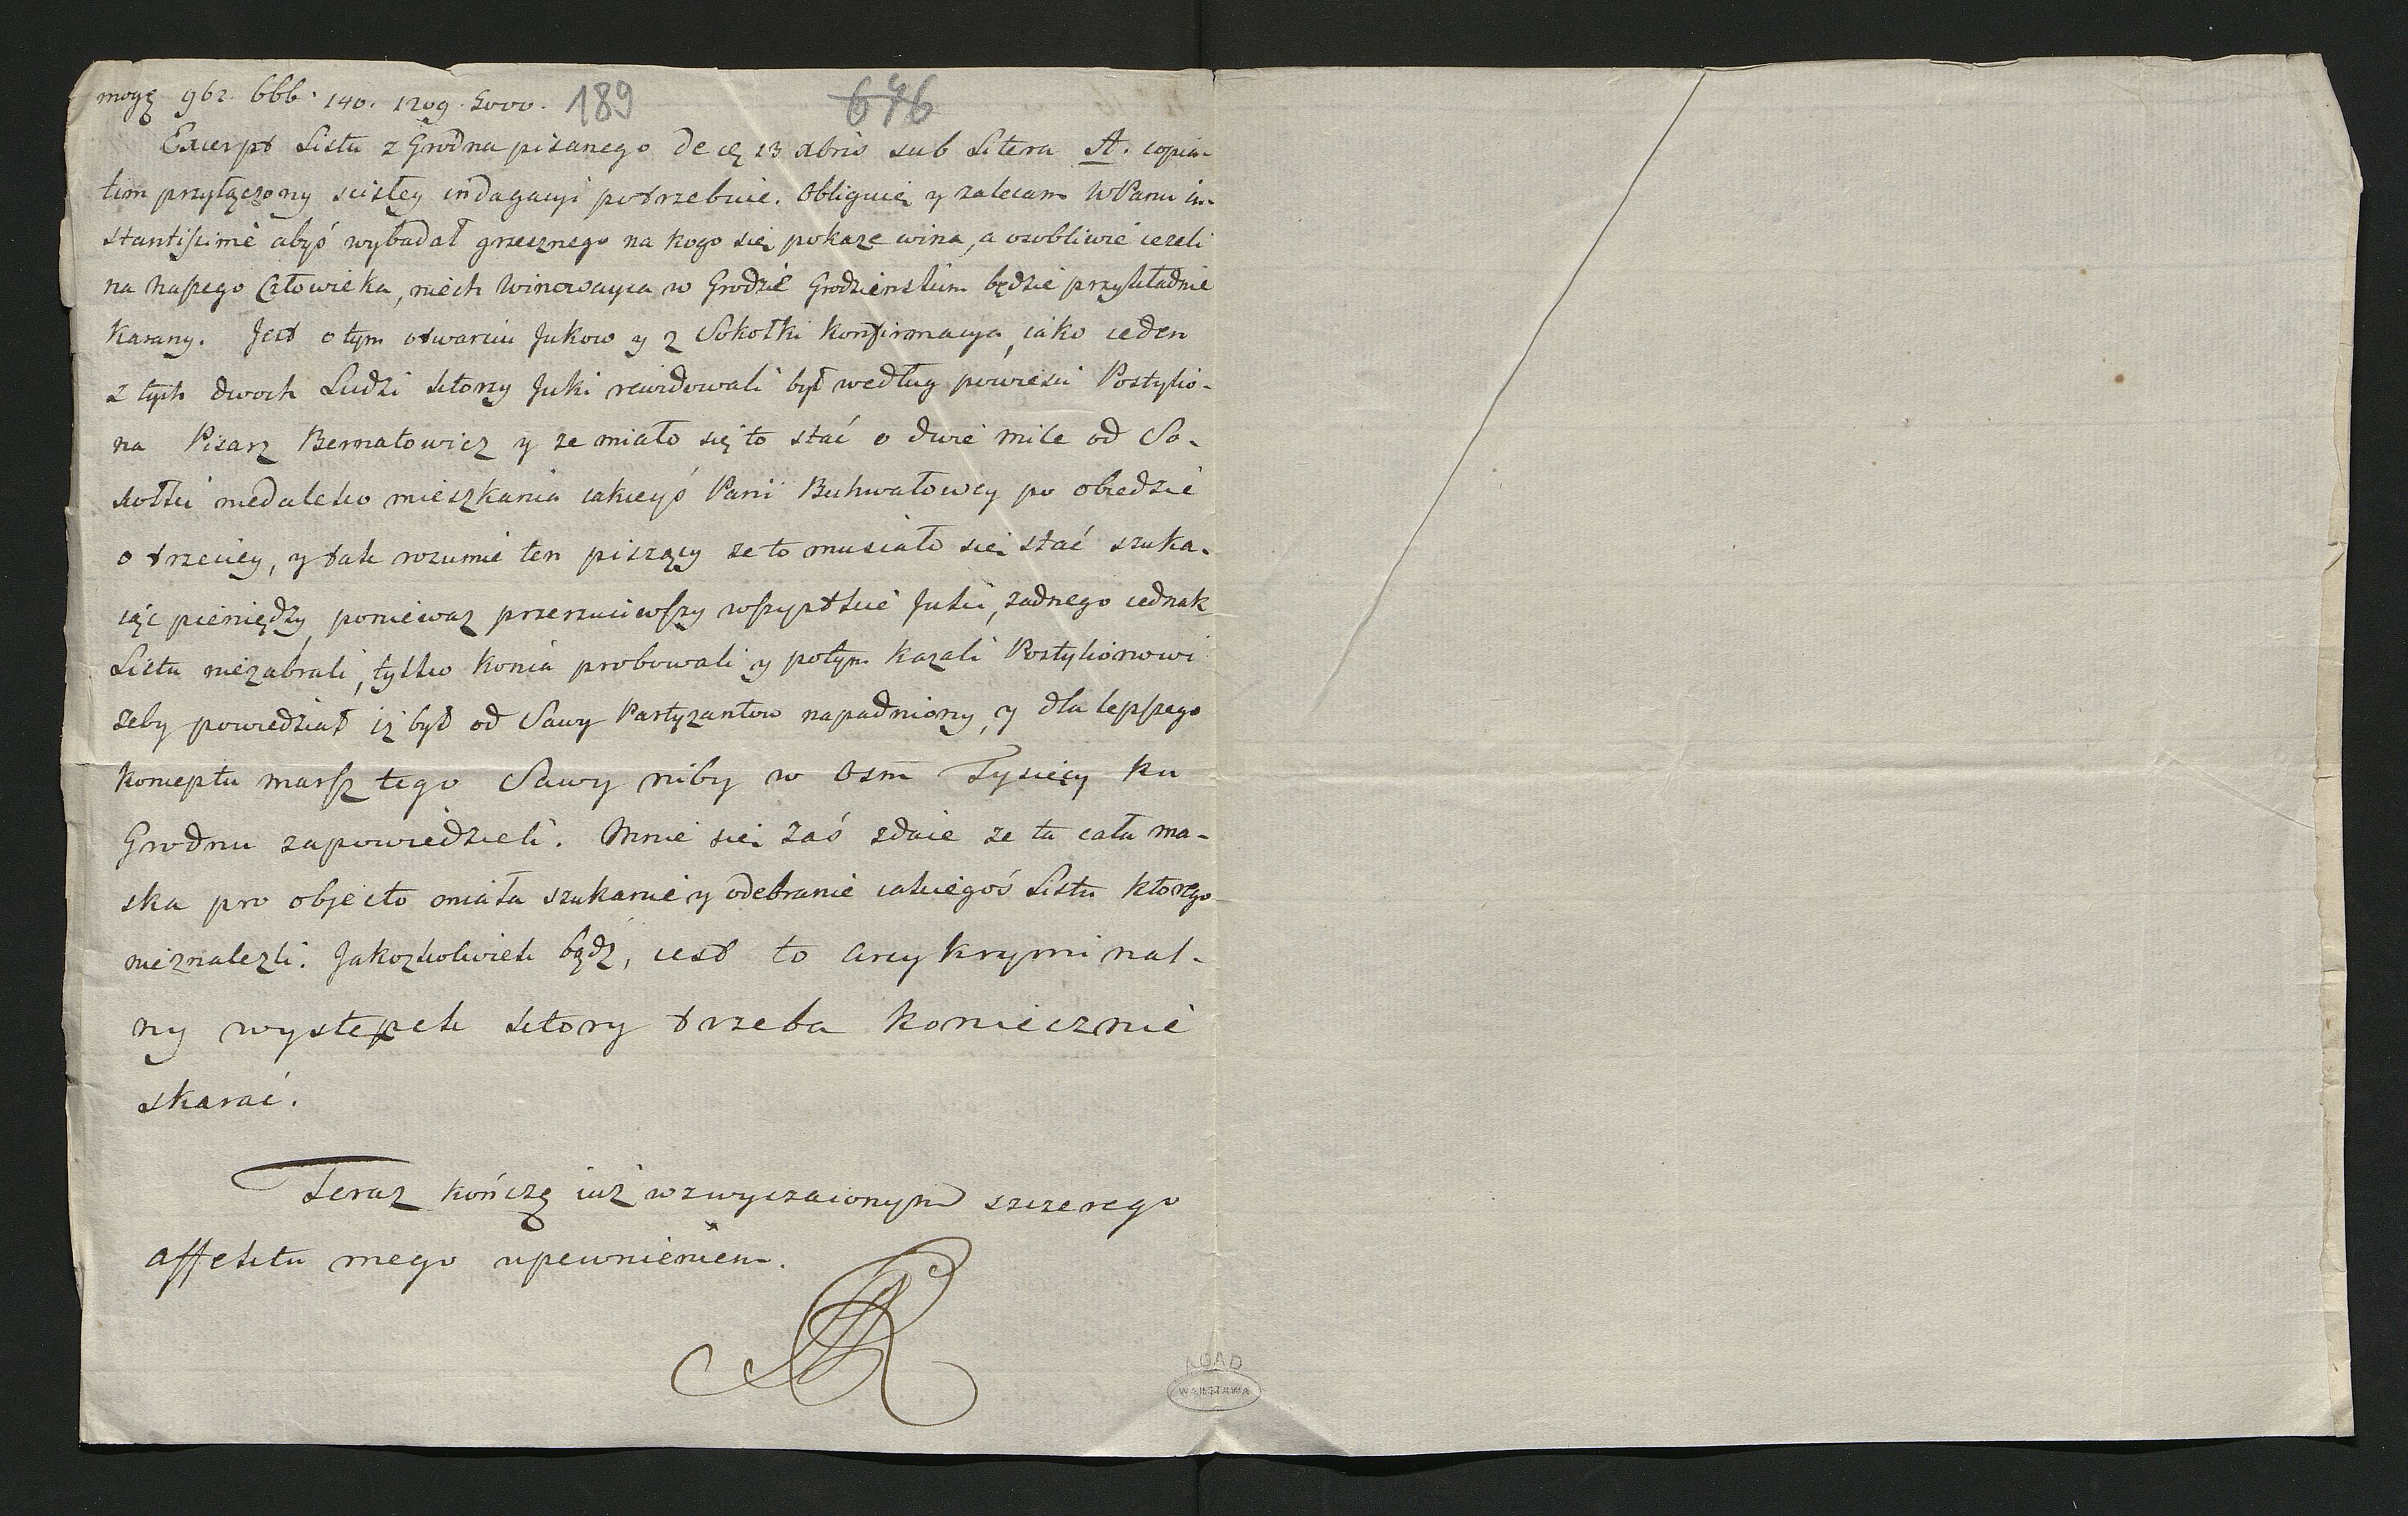 mogę 962. 666. 140. 1209. 5000. 189 646
Excerpt Listu z Grodna pisanego de 13 xbris sub Litera A. copia-
tim przyłączony scisłey indagacyi potrzebuie. Obliguię y zalecam WPanu in-
stantissimè abyś wybadał grzecznego na kogo się pokaze wina, a osobliwie iezeli
na naszego Człowieka, niech Winowayca w Grodzie Grodzienskim będzie przykładnie
karany. Jest o tym otwarciu Jukow y z Sokołki konfirmacya, iako ieden
z tych dwoch Ludzi ktorzy Juki rewidowali był według powiesci Postylio-
na Pisarz Bernatowicz y ze miało się to stać o dwie mile od So-
kołki niedaleko mieszkania iakieyś Pani Buhwałowey po obiedzie
o trzeciey, y tak rozumie ten piszący ze to musiało się stać szuka-
iąc pieniędzy, poniewaz przerzuciwszy wszystkie Juki, zadnego iednak
Listu niezabrali, tylko konia probowali y potym kazali Postylionowi
zeby powiedział iz był od Sawy Partyzantow napadniony, y dla lepszego
konceptu marsz tego Sawy niby w Osm Tysięcy ku
Grodnu zapowiedzieli. Mnie się zaś zdaie ze ta cała ma-
ska pro objecto miała szukanie y odebranie iakiegoś Listu ktorego
nieznalezli. Jakozkolwiek bądz, iest to arcykryminal-
ny występek ktory trzeba koniecznie
skarać.
Teraz kończę iuz wzwyczaionym szczerego
affektu mego upewnieniem.
AGAD
WARSZAWA